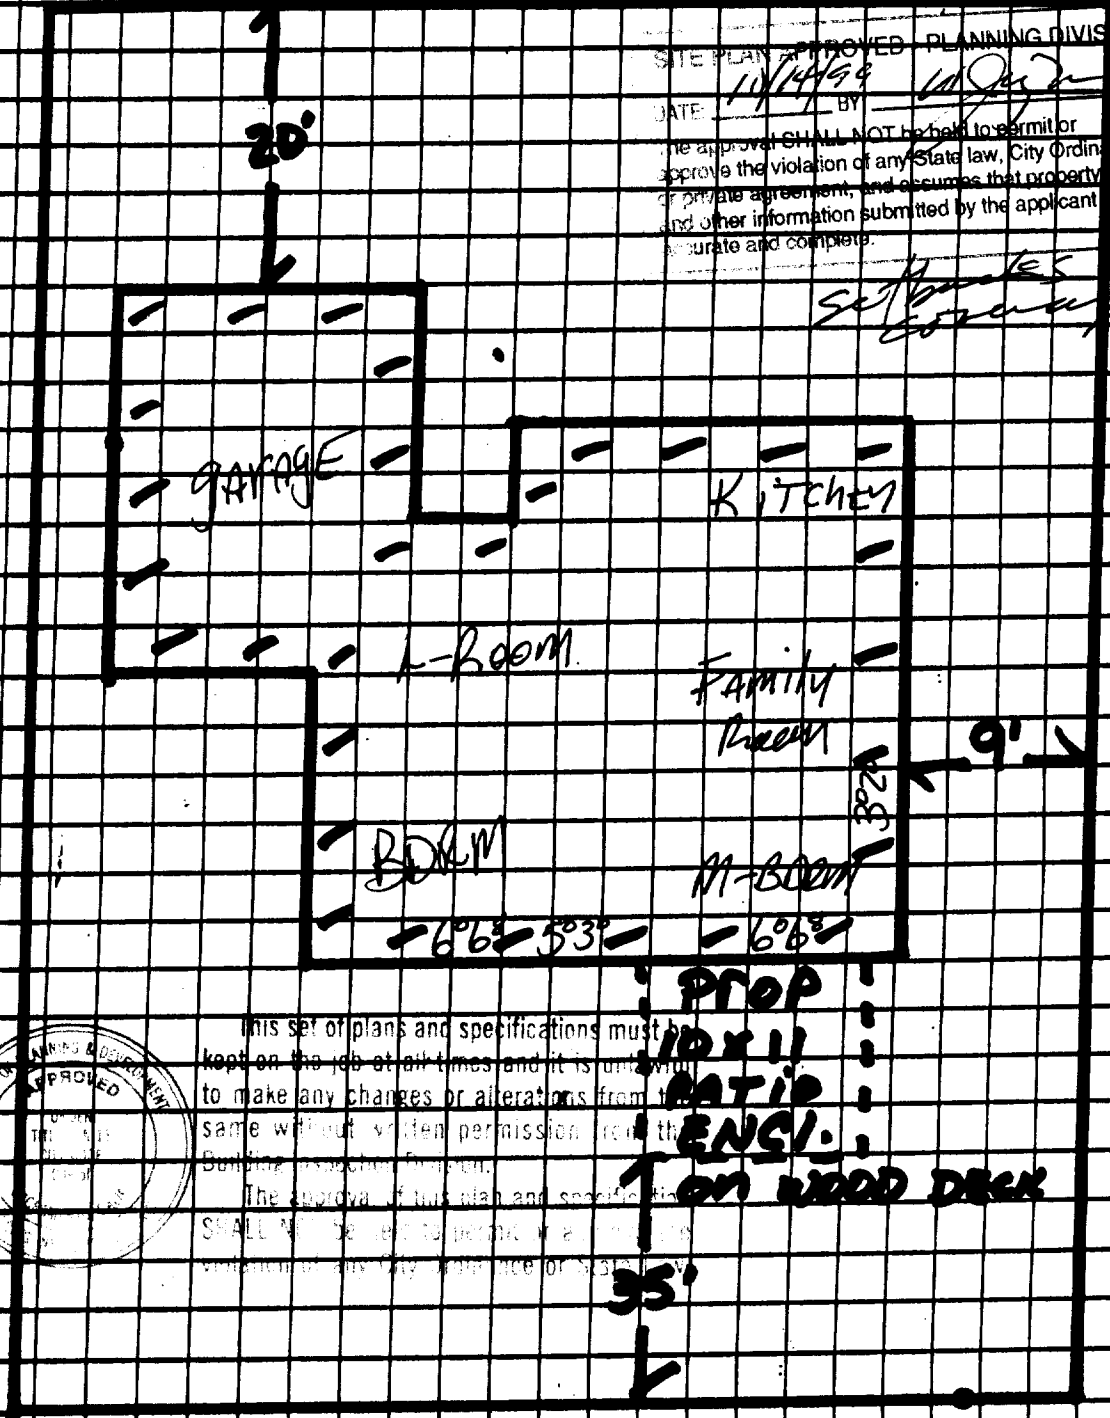 SITE PLAN APPROVED PLANNING DIVIS
DATE 11/14/99 BY
The approval SHALL NOT be held to permit or
approve the violation of any State law, City Ordina
or private agreement, and assumes that property
and other information submitted by the applicant
accurate and complete.
Setbacks
20'
GARAGE
KiTCHEN
L-ROOM
FAmily
Room
9'
3°2°
BDRM
M-BDRM
6°6⁸ 5°3° 6°6⁸
PROP
10X11
PATiO
ENCl.
ON WOOD DECK
35'
This set of plans and specifications must be
kept on the job at all times and it is unlawful
to make any changes or alterations from the
same without written permission from the
Building Inspection Division.
The approval of this plan and specification
SHALL NOT be held to permit or
violation of any City Ordinance or State
PLANNING & DEVELOPMENT
APPROVED